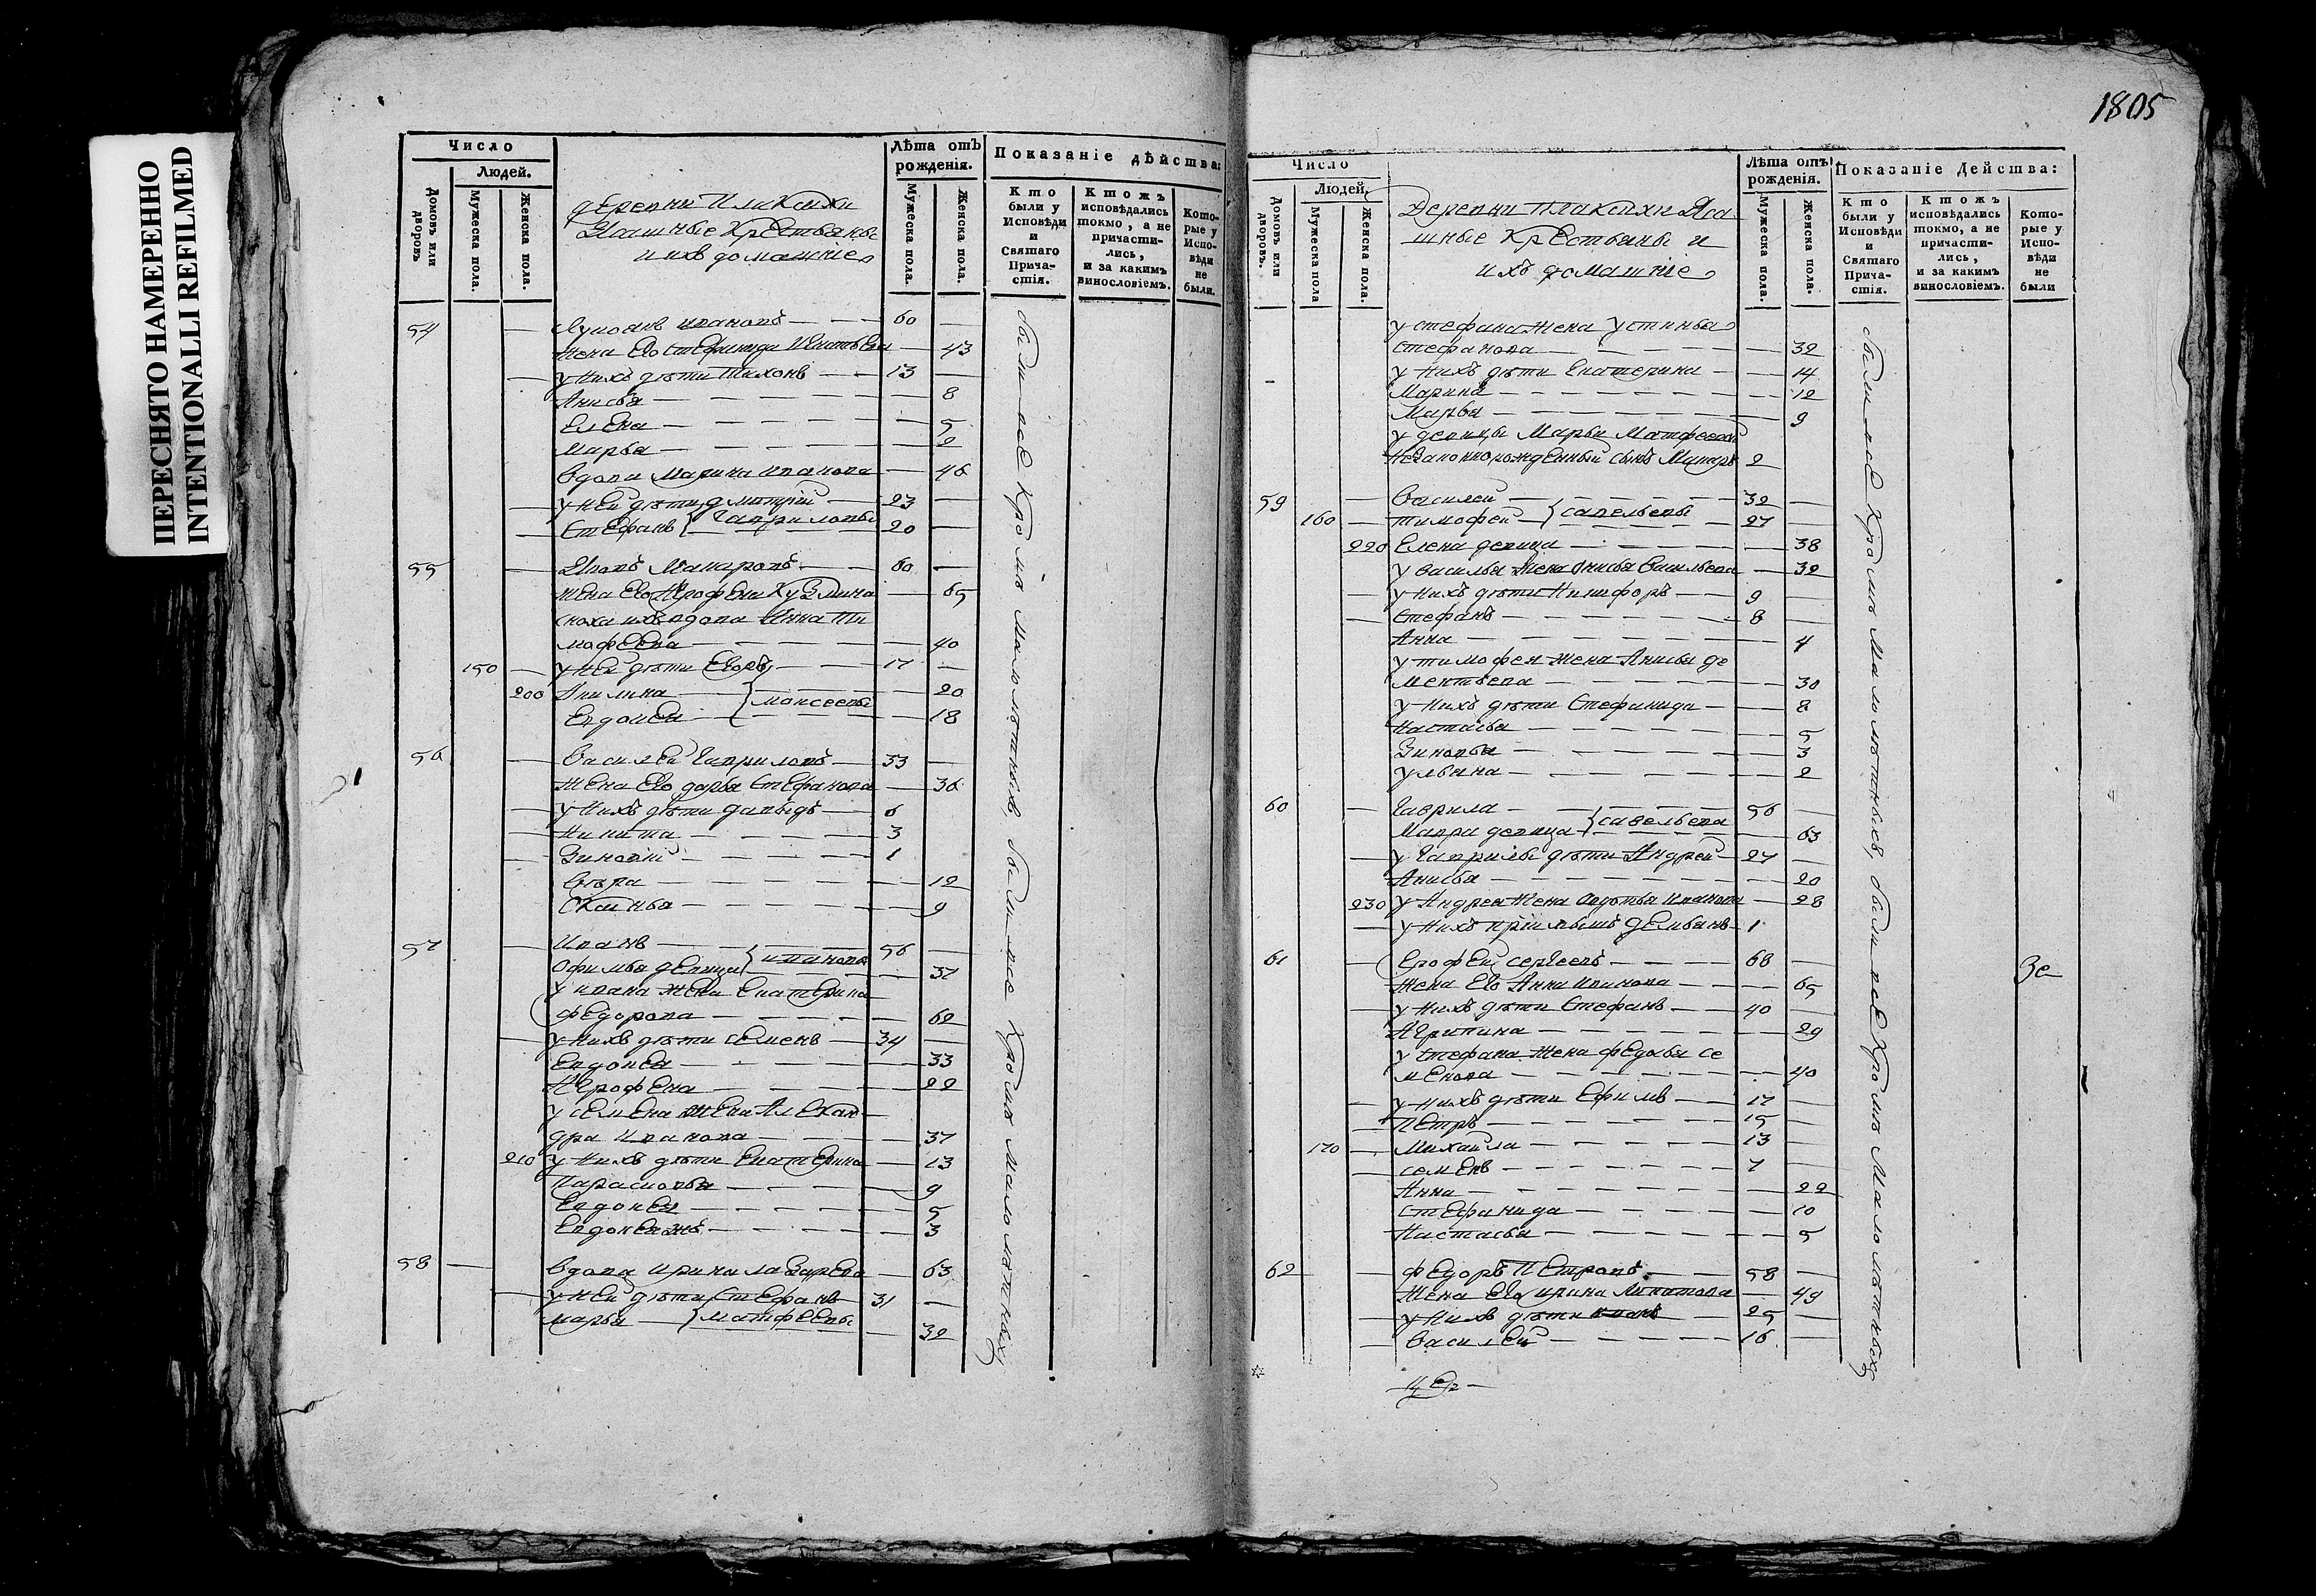 ПЕРЕСНЯТО НАМЕРЕННО
INTENTIONALLI REFILMED
Число
Людей.
Домовъ или дворовъ
Мужеска пола.
Женска пола.
деревни Плаксихи
Ясашные Крестьяны
и ихъ домашние
Лѣта отъ рожденія.
Мужеска пола.
Женска пола.
Показаніе дѣйства:
Кто были у Исповѣди и Святаго Причастія.
Ктожъ исповѣдались токмо, а не причастились, и за какимъ винословіемъ.
Которые у Исповѣди не были.
54 — Ивановъ — 60 —
жена Его Стефанида — 43
— у нихъ дѣти Тихонъ — 13 —
Анисья — 8
Елена — 5
Марья — 2
вдова Марина Иванова — 46
— у ней дѣти Дмитрій — 23 —
— Стефанъ } Гавриловы 20 —
55 — Макаровъ — 60 —
жена Его Агрофена Кузмина — 65
сноха ихъ вдова Анна Ти
мофеева — 40
150 — у ней дѣти Егоръ — 17 —
200 Акилина — 20
Евдокея } Моисеевы — 18
56 — Василей Гавриловъ — 33 —
жена Его дарья Стефанова — 36
— у нихъ дѣти давыдъ — 6
— Никита — 3
— Зиновій — 1
Вѣра — 12
— 9
57 — Иванъ — 56 —
Офимья девица } Иванова — 37
у ивана жена Екатерина
Федорова — 62
— у нихъ дѣти Семенъ — 34 —
Евдокея — 33
Агрофена — 22
у Семена жена Алексан
дра Иванова — 37
210 у нихъ дѣти Екатерина — 13
Парасковья — 9
Евдокея — 5
Евдокея жъ — 3
58 — вдова Ирина лазарева — 63
— у ней дѣти Стефанъ 31 —
марья } матфеевы — 32
были все Кроме Малолѣтныхъ, были все Кроме Малолѣтныхъ
1805
Число
Людей.
Домовъ или дворовъ.
Мужеска пола
Женска пола.
Деревни Плаксихи Яса
шные Крестьяны и
ихъ домашние
Лѣта отъ рожденія.
Мужеска пола.
Женска пола.
Показаніе Дѣйства:
Кто были у Исповѣди и Святаго Причастія.
Ктожъ исповѣдались токмо, а не причастились, и за какимъ винословіемъ.
Которые у Исповѣди не были
у стефана жена устинья
стефанова — 32
у нихъ дѣти Екатерина — 14
Марина — 12
Марья — 9
у девицы Марьи Матфеевой
незаконнорожденный сынъ 2
59 — Василей — 32 —
160 — тимофей } савельевы 27 —
220 Елена девица — 38
у василья жена Анисья Васильева — 32
— у нихъ дѣти Никифоръ — 9 —
— Стефанъ — 8 —
Анна — 4
у тимофея жена Анисья де
ментьева — 30
у нихъ дѣти Стефанида — 8
Настасья — 5
Зиновья — 3
ульяна — 2
60 — Гаврила — 56 —
Мавра девица } савельева — 63
— у Гаврилы дѣти Андрей — 27 —
Анисья — 20
230 у Андрея жена Авдотья Иванова — 28
— у нихъ пріимышъ Демьянъ — 1
61 — Ерофей Сергеевъ — 68 —
жена Его Анна Иванова — 65
— у нихъ дѣти Стефанъ — 40 —
Агрипина — 29
у Стефана жена федосья Се
менова — 40
— у нихъ дѣти Ефимъ — 17 —
— Петръ — 15 —
170 — Михайла — 13 —
— семенъ — 7 —
Анна — 22
Стефанида — 10
Настасья — 5
62 — Федоръ Петровъ — 58 —
жена Его ирина — 49
— у нихъ дѣти иванъ — 25 —
— Василей — 16 —
были все Кроме Малолѣтныхъ, были все Кроме Малолѣтныхъ